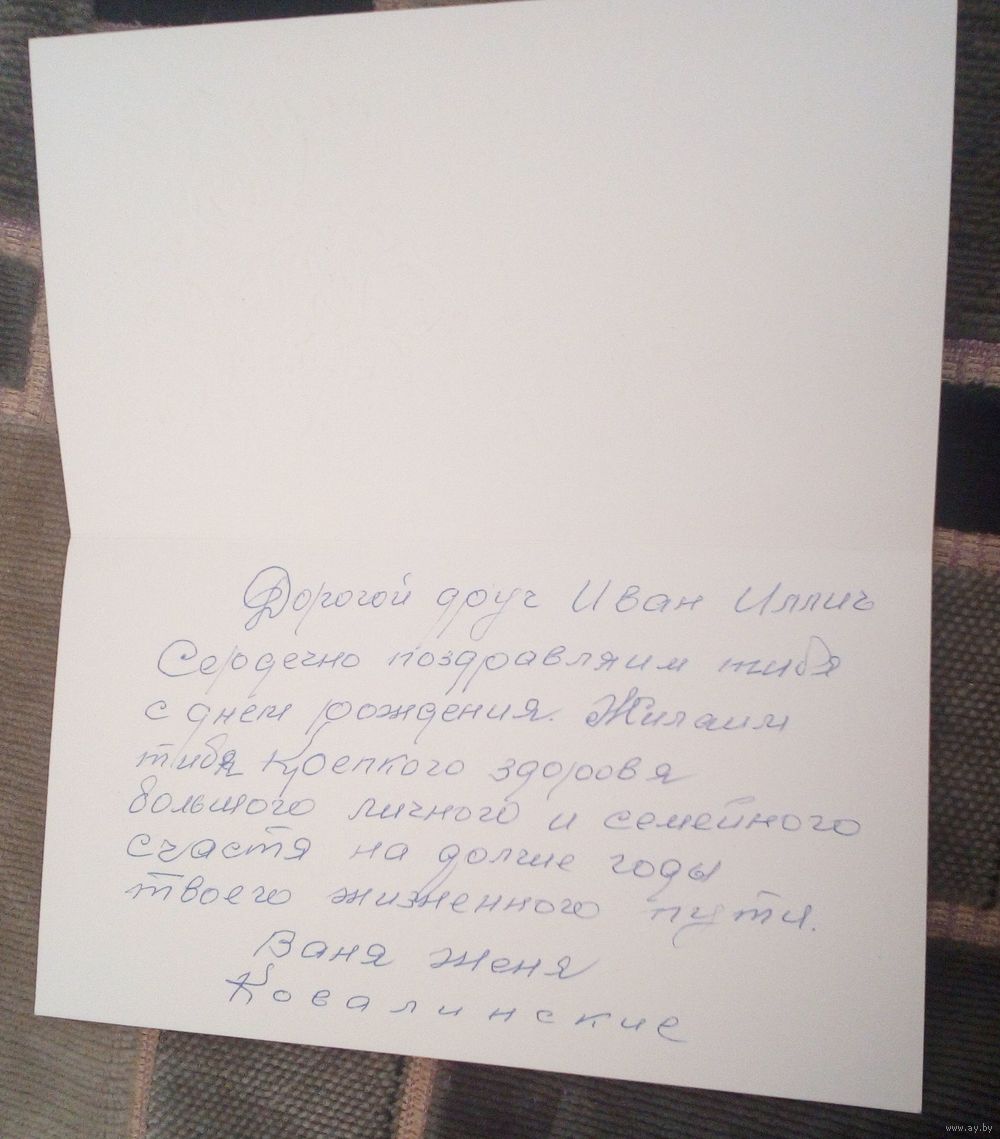 Дорогой друг Иван Иллич
Сердечно поздравляим тибя
с днем рождения. Жилаим
тибя крепкого здоровя
большого личного и семейного
счастя на долгие годы
твоего жизненного пути.
Ваня Женя
Ковалинские
www.ay.by